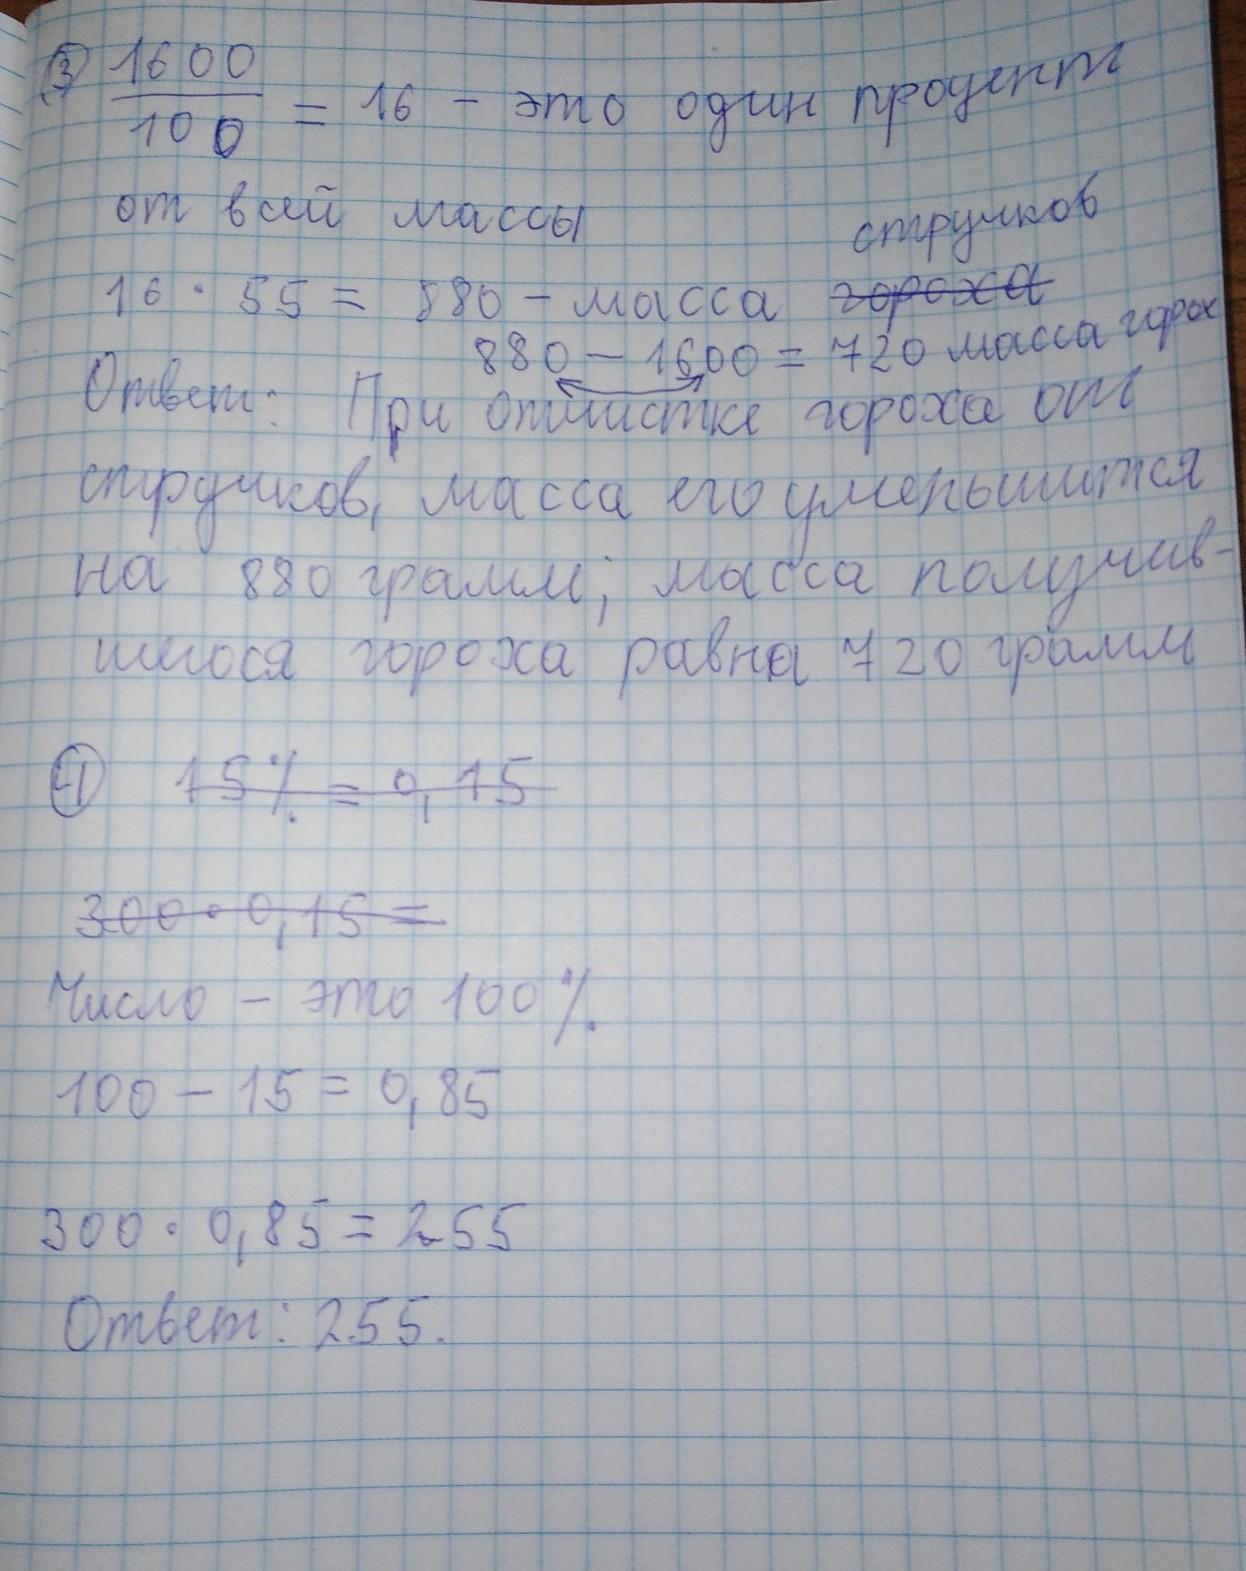 ③ 1600/100 = 16 – это один процент
от всей массы
16 · 55 = 880 – масса гороха стручков
880 – 1600 = 720 масса горох
Ответ: При отчистке гороха от
стручков, масса его уменьшится
на 880 грамм; масса получив-
шегося гороха равна 720 грамм
④ 15% = 0,15
300 · 0,15 =
Число – это 100%
100 – 15 = 0,85
300 · 0,85 = 255
Ответ: 255.